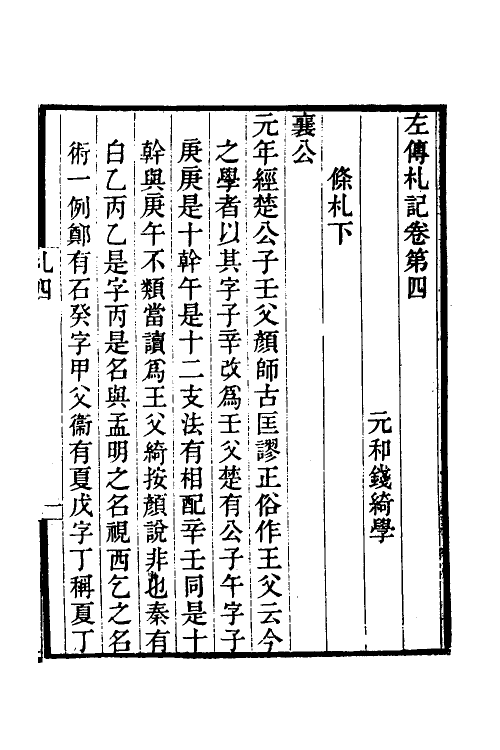 左傳札記卷第四
元和錢綺學
條札下
襄公
元年經楚公子壬父顏師古匡謬正俗作王父云今
之學者以其字子辛改爲壬父楚有公子午字子
庚庚是十幹午是十二支法有相配辛壬同是十
幹與庚午不類當讀爲王父綺按顏說非也秦有
白乙丙乙是字丙是名與孟明之名視西乞之名
術一例鄭有石癸字甲父衞有夏戊字丁稱夏丁
札四
一